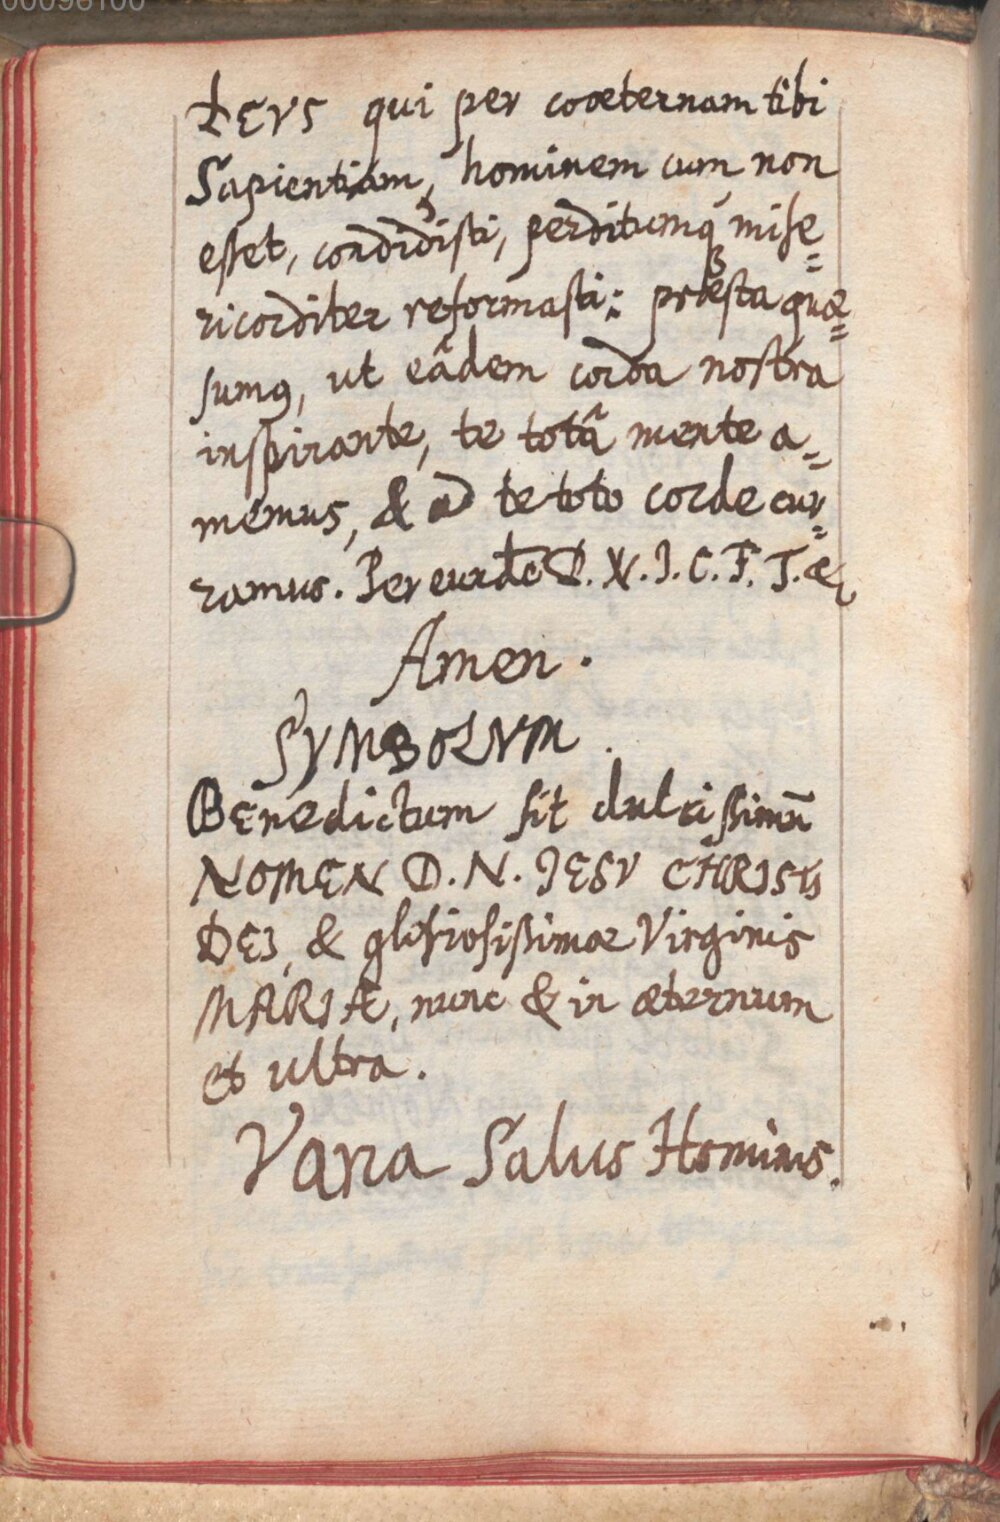 00096100
DEVS qui per coæternam tibi
Sapientiam, hominem cum non
esset, condidisti, perditumq́ mise=
ricorditer reformasti: præsta quæ=
sumꝰ, ut eâdem corda nostra
inspirante, te totâ mente a=
memus, & ad te toto corde cur=
ramus. Per eundē D. N. J. C. F. T. &
Amen.
SYMBOLVM.
Benedictum sit dulcissimū
NOMEN D. N. JESV CHRISTI
DEI, & gloriosissimæ Virginis
MARIÆ, nunc & in æternum
et ultra.
Vana Salus Hominis.